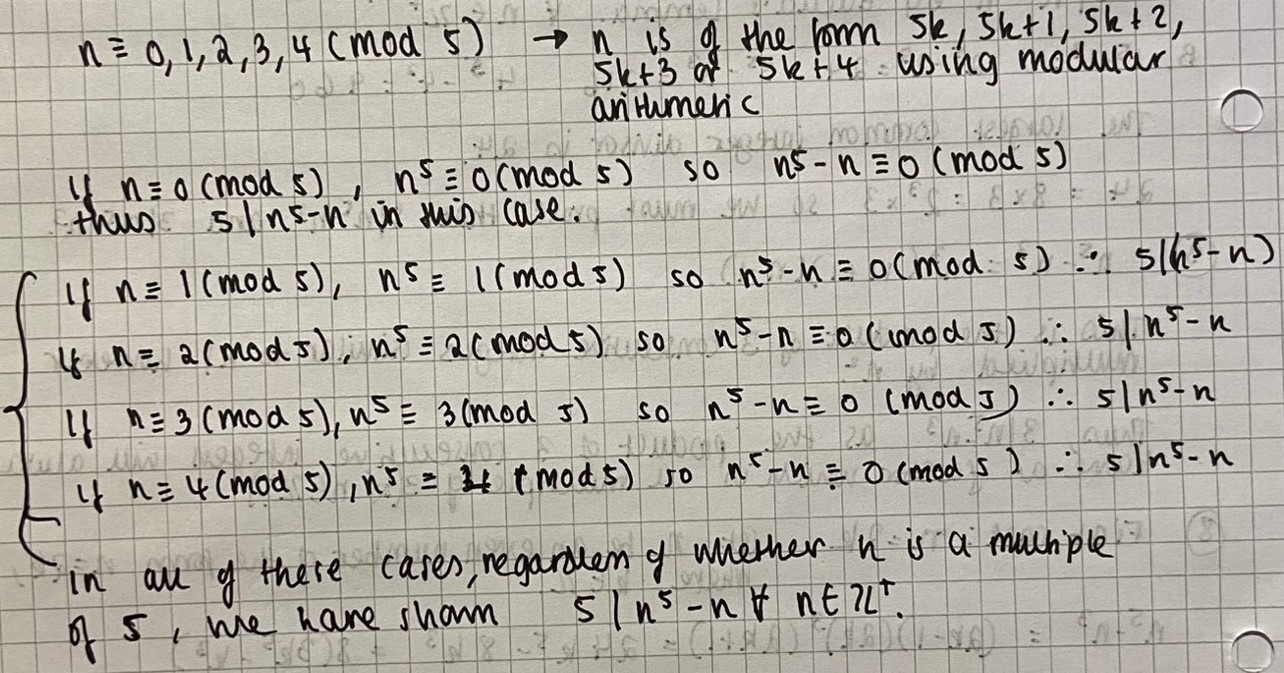 n ≡ 0,1,2,3,4 (mod 5) → n is of the form 5k, 5k+1, 5k+2,
5k+3 or 5k+4 using modular
arithmeric
If n ≡ 0 (mod 5), n⁵ ≡ 0 (mod 5) so n⁵ - n ≡ 0 (mod 5)
thus 5 | n⁵-n in this case.
If n ≡ 1 (mod 5), n⁵ ≡ 1 (mod 5) so n⁵ - n ≡ 0 (mod 5) ∴ 5|(n⁵-n)
If n ≡ 2 (mod 5), n⁵ ≡ 2 (mod 5) so n⁵ - n ≡ 0 (mod 5) ∴ 5 | n⁵ - n
If n ≡ 3 (mod 5), n⁵ ≡ 3 (mod 5) so n⁵ - n ≡ 0 (mod 5) ∴ 5 | n⁵ - n
If n ≡ 4 (mod 5), n⁵ ≡ 4 (mod 5) so n⁵ - n ≡ 0 (mod 5) ∴ 5 | n⁵ - n
in all of these cases, regardless of whether n is a multiple
of 5, we have shown 5 | n⁵ - n ∀ n ∈ ℤ⁺.